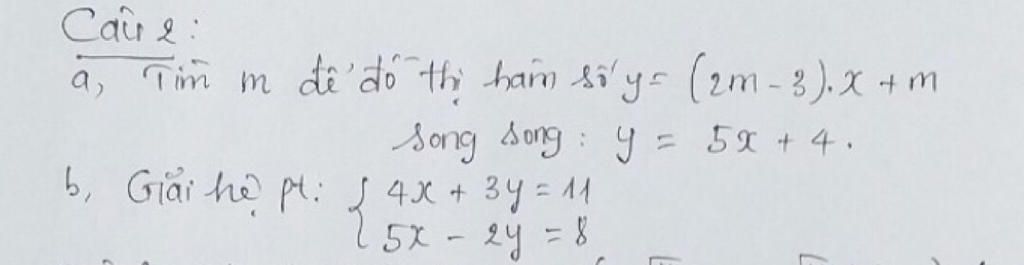 Câu 2:
a, Tìm m để đồ thị hàm số y = (2m - 3).x + m
song song : y = 5x + 4.
b, Giải hệ pt: { 4x + 3y = 11
5x - 2y = 8